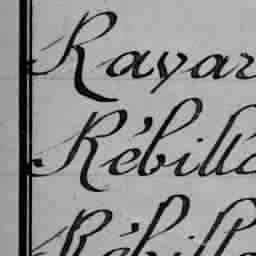 Rayar
Rébill
Rébill